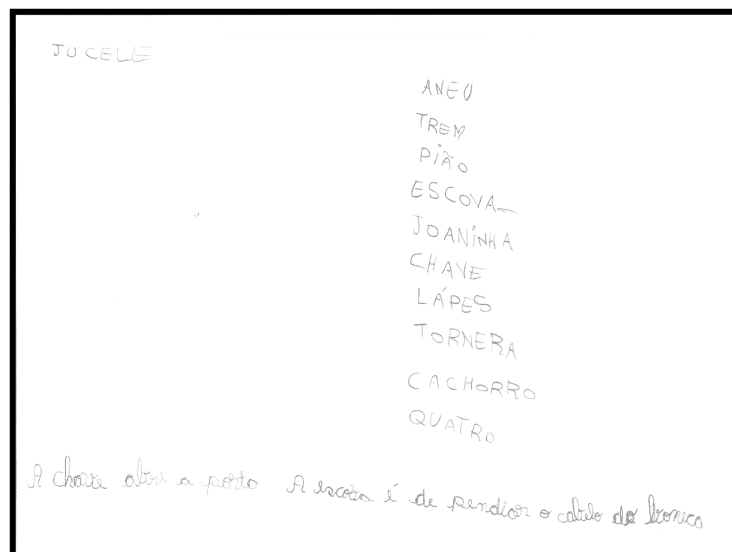 JUCELE
ANEU
TREM
PIÃO
ESCOVA
JOANINHA
CHAVE
LÁPES
TORNERA
CACHORRO
QUATRO
A chave abre a porta A escova é de pendiar o cabelo da boneca